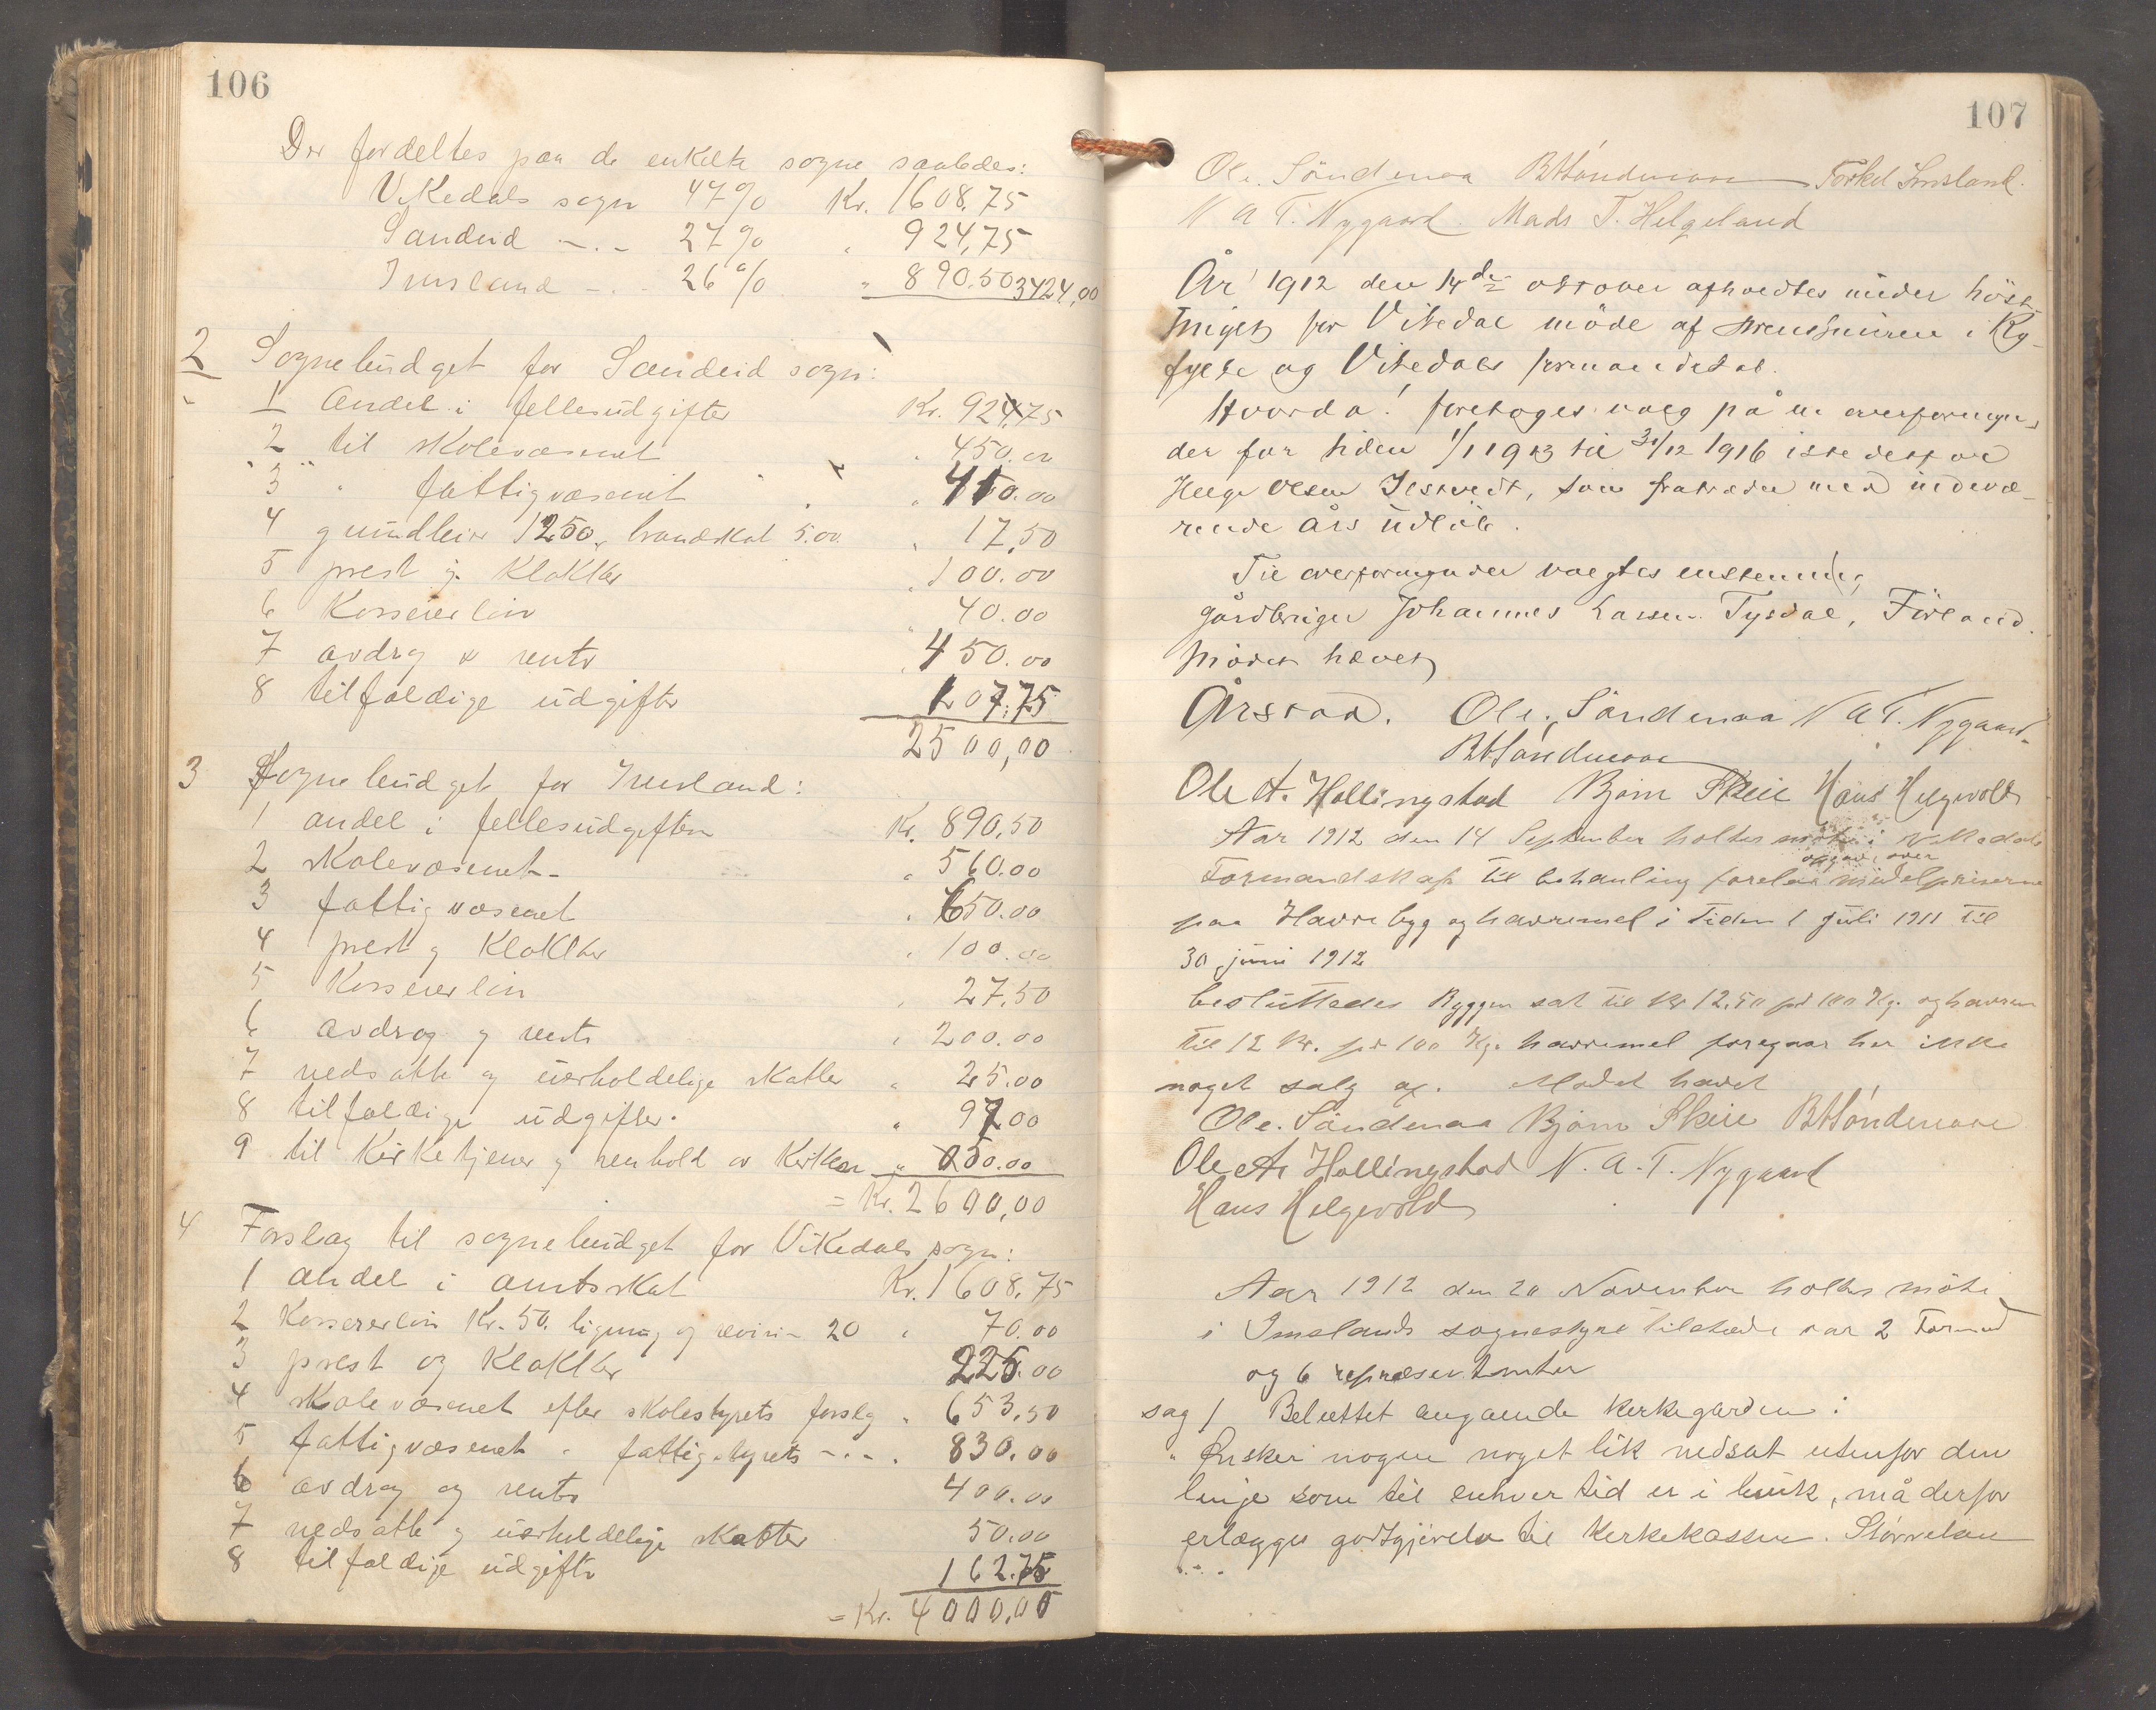 106
Der fordeltes paa de enkelte sogne saaledes:
Vikedals sogn 47% Kr. 1608.75
Sandeid -.- 27% " 924,75
Imsland -.- 26% " 890.50 3424,00
2 Sognebudget for Sandeid sogn:
1 Andel i fellesudgifter Kr. 924,75
2 til skolevæsenet " 450.00
3 " fattigvæsenet " 410.00
4 grundleie 12.50, brandskat 5.00 " 17,50
5 prest og Klokker " 100.00
6 Kassererløn " 40.00
7 avdrag & rente " 450.00
8 tilfældige udgifter 107.75
2500,00
3 Sognebudget for Imsland:
1 andel i fellesudgifter Kr. 890,50
2 skolevæsenet - " 560.00
3 fattigvæsenet " 650.00
4 prest og Klokker " 100.00
5 Kassererløn " 27.50
6 avdrag og rente " 200.00
7 nedsatte og uerholdelige skatter " 25.00
8 tilfældige udgifter. " 97.00
9 til Kirketjener og renhold av Kirken " 50.00
= Kr. 2600,00
4 Forslag til sognebudget for Vikedals sogn:
1 andel i amtsskat Kr. 1608,75
2 Kassererløn Kr. 50. ligning og revision 20 " 70.00
3 prest og Klokker 225.00
4 skolevæsenet efter skolestyrets forslag " 653,50
5 fattigvæsenet " fattigstyrets -.-. 830.00
6 avdrag og rente 400.00
7 nedsatte og uerholdelige skatter 50.00
8 tilfældige udgifte 162.75
= Kr. 4000,00
107
Ole. Söndenaa BHSöndenaa Torkel Imsland.
N A T. Nygaard. Mads T. Helgeland
År 1912 den 14de oktober afholdtes under höst-
tinget for Vikedal möde af sorenskriveren i Ry-
fylke og Vikedals formandskab.
Hvorda! foretoges valg på en overformyn-
der for tiden 1/1 1913 til 31/12 1916 istedetfor
Helge Olsen, som fratræder med indevæ-
rende års udløb.
Til overformynder valgtes enstemmig
gårdbruger Johannes Larsen Tysdal, Førland.
Mødet hævet
Årstad. Ole. Söndenaa N A T. Nygaard.
BHSöndenaa
Ole A. Hallingstad Bjørn Skeie Hans Helgevold
Aar 1912 den 14 September holtes møte i Vikedals
opgave over
Formandskap til behanling forelaa middelpriserne
paa Havre bygg og havremel i tiden 1 juli 1911 til
30 juni 1912
besluttedes Byggen sat til Kr 12.50 pr 100 Kg. og havren
til 12 kr. pr 100 Kg. havremel foregaar her ikke
noget salg af. Mødet hævet
Ole. Söndenaa Bjørn Skeie BHSöndenaa
Ole A Hallingstad N. A. T. Nygaard
Hans Helgevold
Aar 1912 den 20 November holtes møte
i Imslands sognestyre tilstede var 2 Formend
og 6 repræsentanter
sag 1 Besluttet angaaende kirkegarden:
" Ønsker nogen noget lik nedsat utenfor den
linje som til enhver tid er i bruk, må derfor
erlægges godtgjørelse til Kirkekassen. Størrelsen